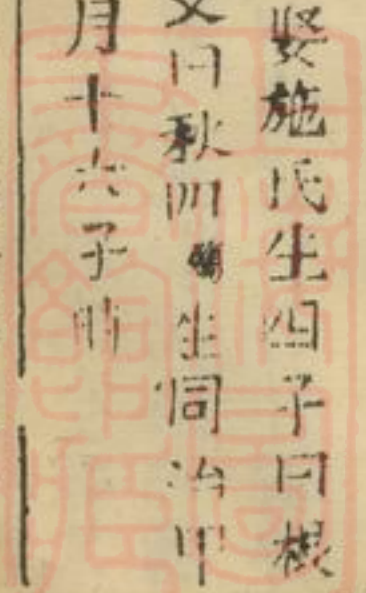 娶施氏生四子曰根
文曰秋四生同治甲
月十六子時